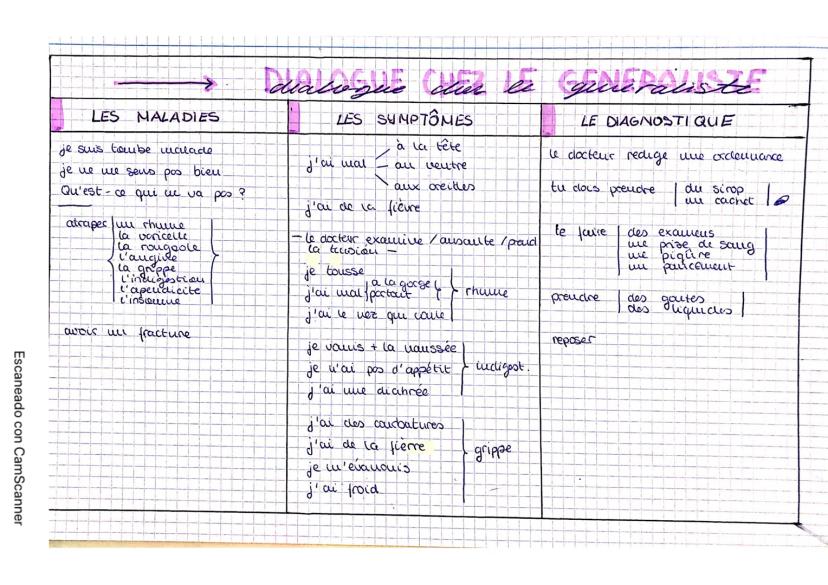 DIALOGUE CHEZ LE GENERALISTE
dialogue chez le généraliste
LES MALADIES
je suis tombe malade
je ne me sens pas bien
Qu'est-ce qui ne va pas ?
atraper un rhume
la varicelle
la rougeole
l'angine
la grippe
l'indigestion
l'apendicite
l'insomnie
avoir un fracture
LES SYMPTÔMES
j'ai mal
à la tête
au ventre
aux oreilles
j'ai de la fièvre
- le docteur examine / ausculte / prend
la tension -
je tousse
j'ai mal à la gorge
partout
j'ai le nez qui coule
rhume
je vomis + la naussée
je n'ai pas d'appétit
j'ai une diahrée
indigest.
j'ai des courbatures
j'ai de la fièrre
je m'évanouis
j'ai froid
grippe
LE DIAGNOSTIQUE
le docteur redige une ordonnance
tu dois prendre
du sirop
un cachet
te faire
des examens
une prise de sang
une piqûre
un pancement
prendre
des goutes
des liquides
reposer
Escaneado con CamScanner